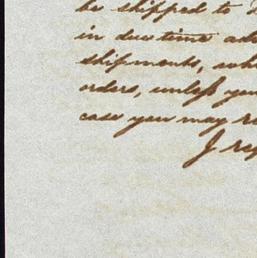 be shipped to
in due time
shipments,
orders, unless you
case you may
I